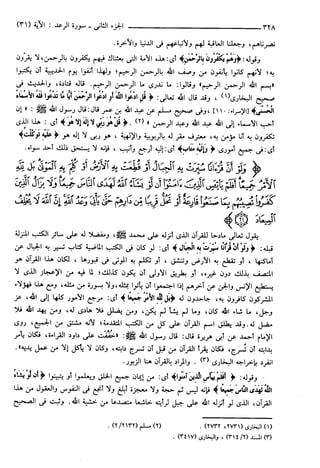 ٣٢٨ الجزء الثانى - سورة الرعد : الآية (٣١)
نصرناهم، وجعلنا العاقبة لهم ولأتباعهم فى الدنيا والآخرة.
وقوله: ﴿وَهُمْ يَكْفُرُونَ بِالرَّحْمَنِ﴾ أى: هذه الأمة التى بعثناك فيهم يكفرون بالرحمن، لا يقرون
به؛ لأنهم كانوا يأنفون من وصف الله بالرحمن الرحيم؛ ولهذا أنفوا يوم الحديبية أن يكتبوا
«بسم الله الرحمن الرحيم» وقالوا: ما ندرى ما الرحمن الرحيم. قاله قتادة، والحديث فى
صحيح البخارى(١)، وقد قال الله تعالى: ﴿قُلِ ادْعُوا اللَّهَ أَوِ ادْعُوا الرَّحْمَنَ أَيًّا مَا تَدْعُوا فَلَهُ الْأَسْمَاءُ
الْحُسْنَى﴾ [الإسراء: ١١٠]، وفى صحيح مسلم عن عبد الله بن عمر قال: قال رسول الله ﷺ: «إن
أحب الأسماء إلى الله عبد الله وعبد الرحمن»(٢). ﴿قُلْ هُوَ رَبِّي لَا إِلَهَ إِلَّا هُوَ﴾ أى: هذا الذى
تكفرون به أنا مؤمن به، معترف مقر له بالربوبية والإلهية، هو ربى لا إله إلا هو ﴿عَلَيْهِ تَوَكَّلْتُ﴾
أى: فى جميع أمورى ﴿وَإِلَيْهِ مَتَابِ﴾ أى: إليه أرجع وأنيب، فإنه لا يستحق ذلك أحد سواه.
﴿وَلَوْ أَنَّ قُرْآنًا سُيِّرَتْ بِهِ الْجِبَالُ أَوْ قُطِّعَتْ بِهِ الْأَرْضُ أَوْ كُلِّمَ بِهِ الْمَوْتَى بَلْ لِلَّهِ
الْأَمْرُ جَمِيعًا أَفَلَمْ يَيْأَسِ الَّذِينَ آمَنُوا أَنْ لَوْ يَشَاءُ اللَّهُ لَهَدَى النَّاسَ جَمِيعًا وَلَا يَزَالُ الَّذِينَ
كَفَرُوا تُصِيبُهُمْ بِمَا صَنَعُوا قَارِعَةٌ أَوْ تَحُلُّ قَرِيبًا مِنْ دَارِهِمْ حَتَّى يَأْتِيَ وَعْدُ اللَّهِ إِنَّ اللَّهَ لَا يُخْلِفُ
الْمِيعَادَ (٣١)﴾
يقول تعالى مادحا للقرآن الذى أنزله على محمد ﷺ، ومفضلا له على سائر الكتب المنزلة
قبله: ﴿وَلَوْ أَنَّ قُرْآنًا سُيِّرَتْ بِهِ الْجِبَالُ﴾ أى: لو كان فى الكتب الماضية كتاب تسير به الجبال عن
أماكنها، أو تقطع به الأرض وتنشق، أو تكلم به الموتى فى قبورها، لكان هذا القرآن هو
المتصف بذلك دون غيره، أو بطريق الأولى أن يكون كذلك؛ لما فيه من الإعجاز الذى لا
يستطيع الإنس والجن عن آخرهم إذا اجتمعوا أن يأتوا بمثله، ولا بسورة من مثله، ومع هذا فهؤلاء
المشركون كافرون به، جاحدون له ﴿بَلْ لِلَّهِ الْأَمْرُ جَمِيعًا﴾ أى: مرجع الأمور كلها إلى الله، عز
وجل، ما شاء الله كان، وما لم يشأ لم يكن، ومن يضلل فلا هادى له، ومن يهد الله فلا
مضل له. وقد يطلق اسم القرآن على كل من الكتب المتقدمة؛ لأنه مشتق من الجميع، روى
الإمام أحمد عن أبى هريرة قال: قال رسول الله ﷺ: «خففت على داود القراءة، فكان يأمر
بدابته أن تسرج، فكان يقرأ القرآن من قبل أن تسرج دابته، وكان لا يأكل إلا من عمل يديه».
انفرد بإخراجه البخارى(٣). والمراد بالقرآن هنا الزبور.
وقوله: ﴿أَفَلَمْ يَيْأَسِ الَّذِينَ آمَنُوا﴾ أى: من إيمان جميع الخلق ويعلموا أو يتبينوا ﴿أَنْ لَوْ يَشَاءُ
اللَّهُ لَهَدَى النَّاسَ جَمِيعًا﴾ فإنه ليس ثم حجة ولا معجزة أبلغ ولا أنجع فى النفوس والعقول من هذا
القرآن، الذى لو أنزله الله على جبل لرأيته خاشعا متصدعا من خشية الله. وثبت فى الصحيح
(١) البخارى (٢٧٣١، ٢٧٣٢). (٢) مسلم (٢/٢١٣٢).
(٣) المسند (٢/٣١٤)، والبخارى (٣٤١٧).